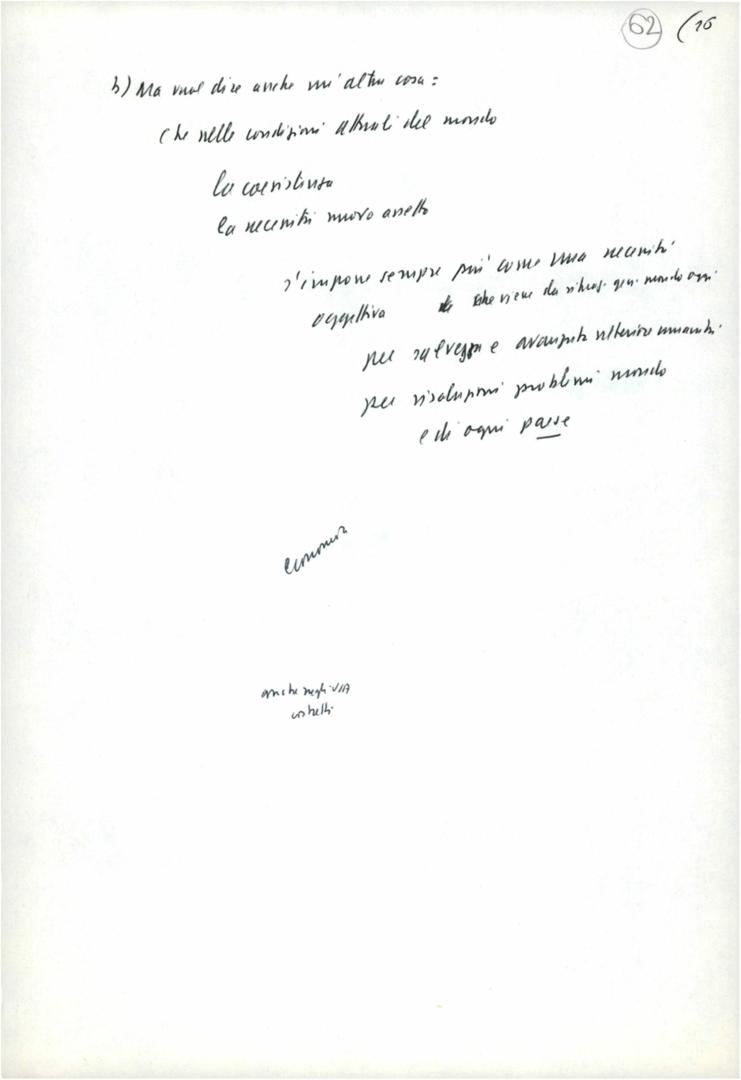 62 (16
b) Ma vuol dire anche un'altra cosa:
che nelle condizioni attuali del mondo
la coesistenza
la necessità nuovo assetto
s'impone sempre più come una necessità
oggettiva che viene da situaz. gen. mondo oggi
per salvezza e avanzata ulteriore umanità
per risoluzioni problemi mondo
e di ogni paese
economia
anche negli USA
costretti